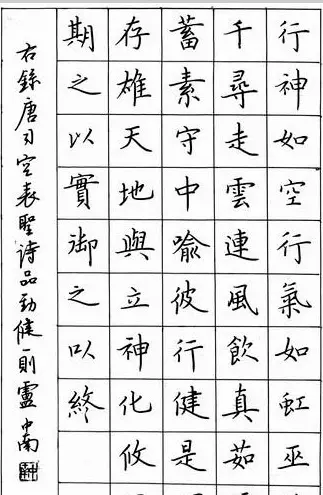 行神如空行氣如虹巫
千尋走雲連風飲真茹
蓄素守中喻彼行健是
存雄天地與立神化攸
期之以實御之以終
右錄唐司空表聖詩品勁健一則盧中南